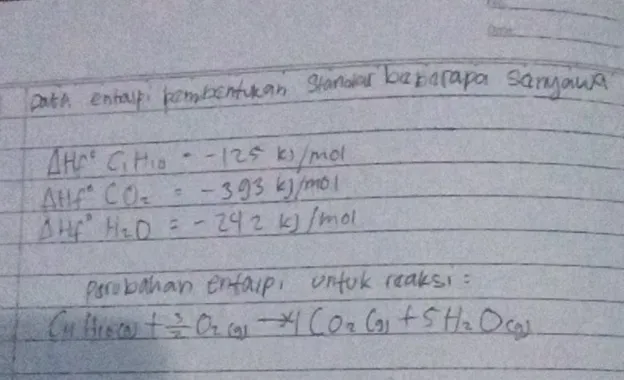 Data entalpi pembentukan standar beberapa senyawa
ΔHf° C4H10 = -125 kJ/mol
ΔHf° CO2 = -393 kJ/mol
ΔHf° H2O = -242 kJ/mol
perubahan entalpi untuk reaksi :
C4H10(g) + 3/2 O2(g) → 4 CO2(g) + 5 H2O(g)